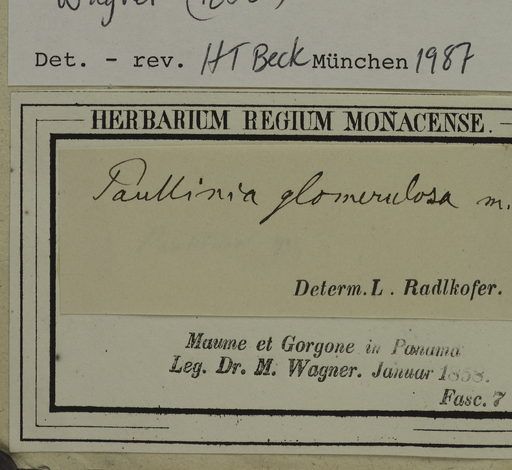 Wagner
Det. - rev. HT Beck München 1987
HERBARIUM REGIUM MONACENSE.
Paullinia glomerulosa m.
Determ. L. Radlkofer.
Maume et Gorgone in Panama
Leg. Dr. M. Wagner. Januar 1858.
Fasc. 7